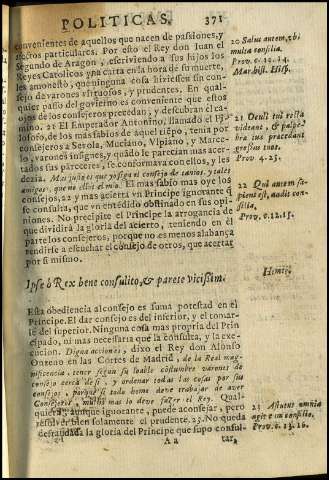 POLITICAS. 371
convenientes de aquellos que nacen de passiones, y
afectos particulares. Por esto el Rey don Juan el
Segundo de Aragon, escriviendo a sus hijos los
Reyes Catolicos vna carta en la hora de su muerte,
les amonestò, que ninguna cosa hiziessen sin con-
sejo de varones virtuosos, y prudentes. En qual-
quier passo del govierno es conveniente que estos
ojos de los consejeros precedan, y descubran el ca-
mino. 21 El Emperador Antonino, llamado el Fi-
losofo, de los mas sabios de aquel tiẽpo, tenia por
consejeros a Scevola, Muciano, Vlpiano, y Marce-
lo, varones insignes, y quãdo le parecian mas acer-
tados sus pareceres, se conformava con ellos, y les
dezia. Mas justo es que yo siga el consejo de tantos, y tales
amigos, que no ellos el mio. El mas sabio mas oye los
consejos, 22 y mas acierta vn Principe ignorante q̃
se consulta, que vn entendido obstinado en sus opi-
niones. No precipite al Principe la arrogancia de
que dividirà la gloria del acierto, teniendo en èl
parte los consejeros, porque no es menos alabãça
rendirse a escuchar el consejo de otros, que acertar
por si mismo.
Ipse ò Rex bene consulito, & parete vicissim.
Esta obediencia al consejo es suma potestad en el
Principe. El dar consejo es del inferior, y el tomar-
le del superior. Ninguna cosa mas propria del Prin
cipado, ni mas necessaria que la consulta, y la exe-
cucion. Digna acciones, dixo el Rey don Alonso
Onzeno en las Cortes de Madrid, de la Real mag-
nificencia, tener segun su loable costumbre varones de
consejo cerca de si, y ordenar todas las cosas por sus
consejos, porque si todo home deve trabajar de aver
Consejeros, mucho mas lo deve fazer el Rey. Qual-
quiera, aunque ignorante, puede aconsejar, pero
resolver bien solamente el prudente. 23 No queda
defraudada la gloria del Principe que supo consul-
A a
tar,
20 Salus autem, vbi
multa consilia.
Prov. c. 11. 14.
Mar. hist. Hisp.
21 Oculi tui recta
videant, & palpe-
bræ tuæ præcedant
gressus tuos.
Prov 4. 25.
22 Qui autem sa-
piens est, audit con-
silia.
Prov. c. 12. 15.
Homer.
23 Astutus omnia
agit cum consilio.
Prov. c. 13. 16.